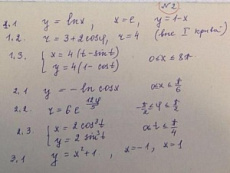 №2
1.1 y = ln x, x = e, y = 1 - x
1.2. r = 3 + 2cosφ, r = 4 (вне I кривой)
1.3. { x = 4(t - sin t) y = 4(1 - cos t) 0 ≤ x ≤ 8π
2.1 y = -ln cos x 0 ≤ x ≤ π/6
2.2. r = 6e^(12φ/5) -π/2 ≤ φ ≤ π/2
2.3 { x = 2cos³t y = 2 sin³t 0 ≤ t ≤ π/4
3.1 y = x² + 1, x = -1, x = 1